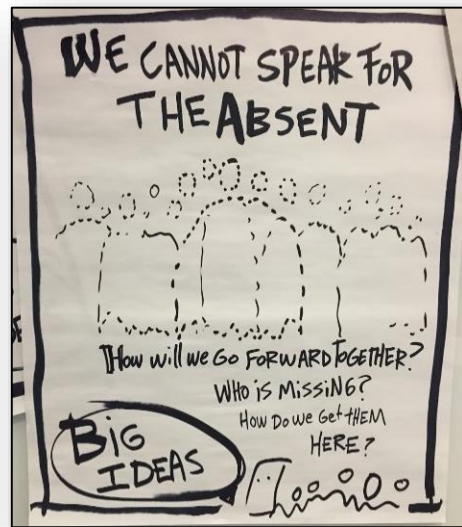 WE CANNOT SPEAK FOR
THE ABSENT
How will we Go FORWARD TOGETHER?
WHO is MissiNG?
How Do we Get tHEM
HERE?
BiG
IDEAS